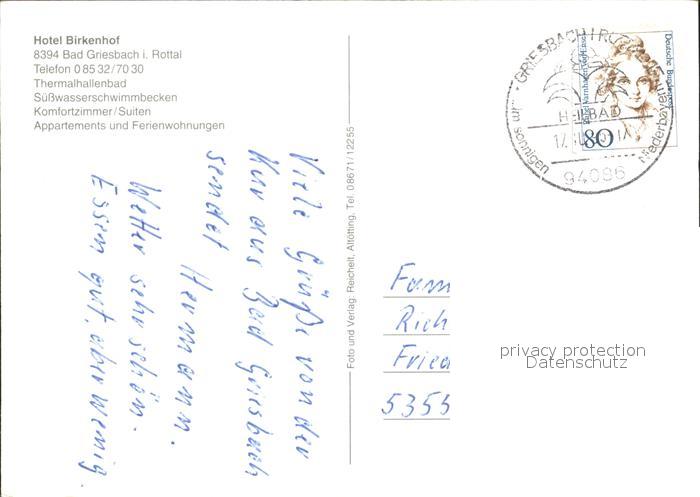 Hotel Birkenhof
8394 Bad Griesbach i. Rottal
Telefon 0 85 32/70 30
Thermalhallenbad
Süßwasserschwimmbecken
Komfortzimmer/Suiten
Appartements und Ferienwohnungen
Viele Grüße von der
Kur aus Bad Griesbach
sendet Hermann.
Wetter sehr schön.
Essen gut, aber wenig.
Foto und Verlag: Reichelt, Altötting, Tel. 08671/12255
GRIESBACH I
HEILBAD
17.
94086
...im sonnigen
Niederbayern
Deutsche Bundespost
80
Fam
Rich
Fried
5355
privacy protection
Datenschutz